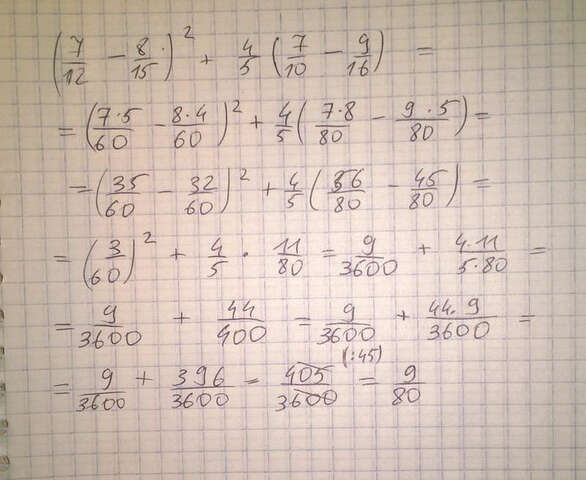 (7/12 - 8/15)² + 4/5 (7/10 - 9/16) =
= (7·5/60 - 8·4/60)² + 4/5 (7·8/80 - 9·5/80) =
= (35/60 - 32/60)² + 4/5 (56/80 - 45/80) =
= (3/60)² + 4/5 · 11/80 = 9/3600 + 4·11/5·80 =
= 9/3600 + 44/400 = 9/3600 + 44·9/3600 =
= 9/3600 + 396/3600 = 405/3600 (:45) = 9/80